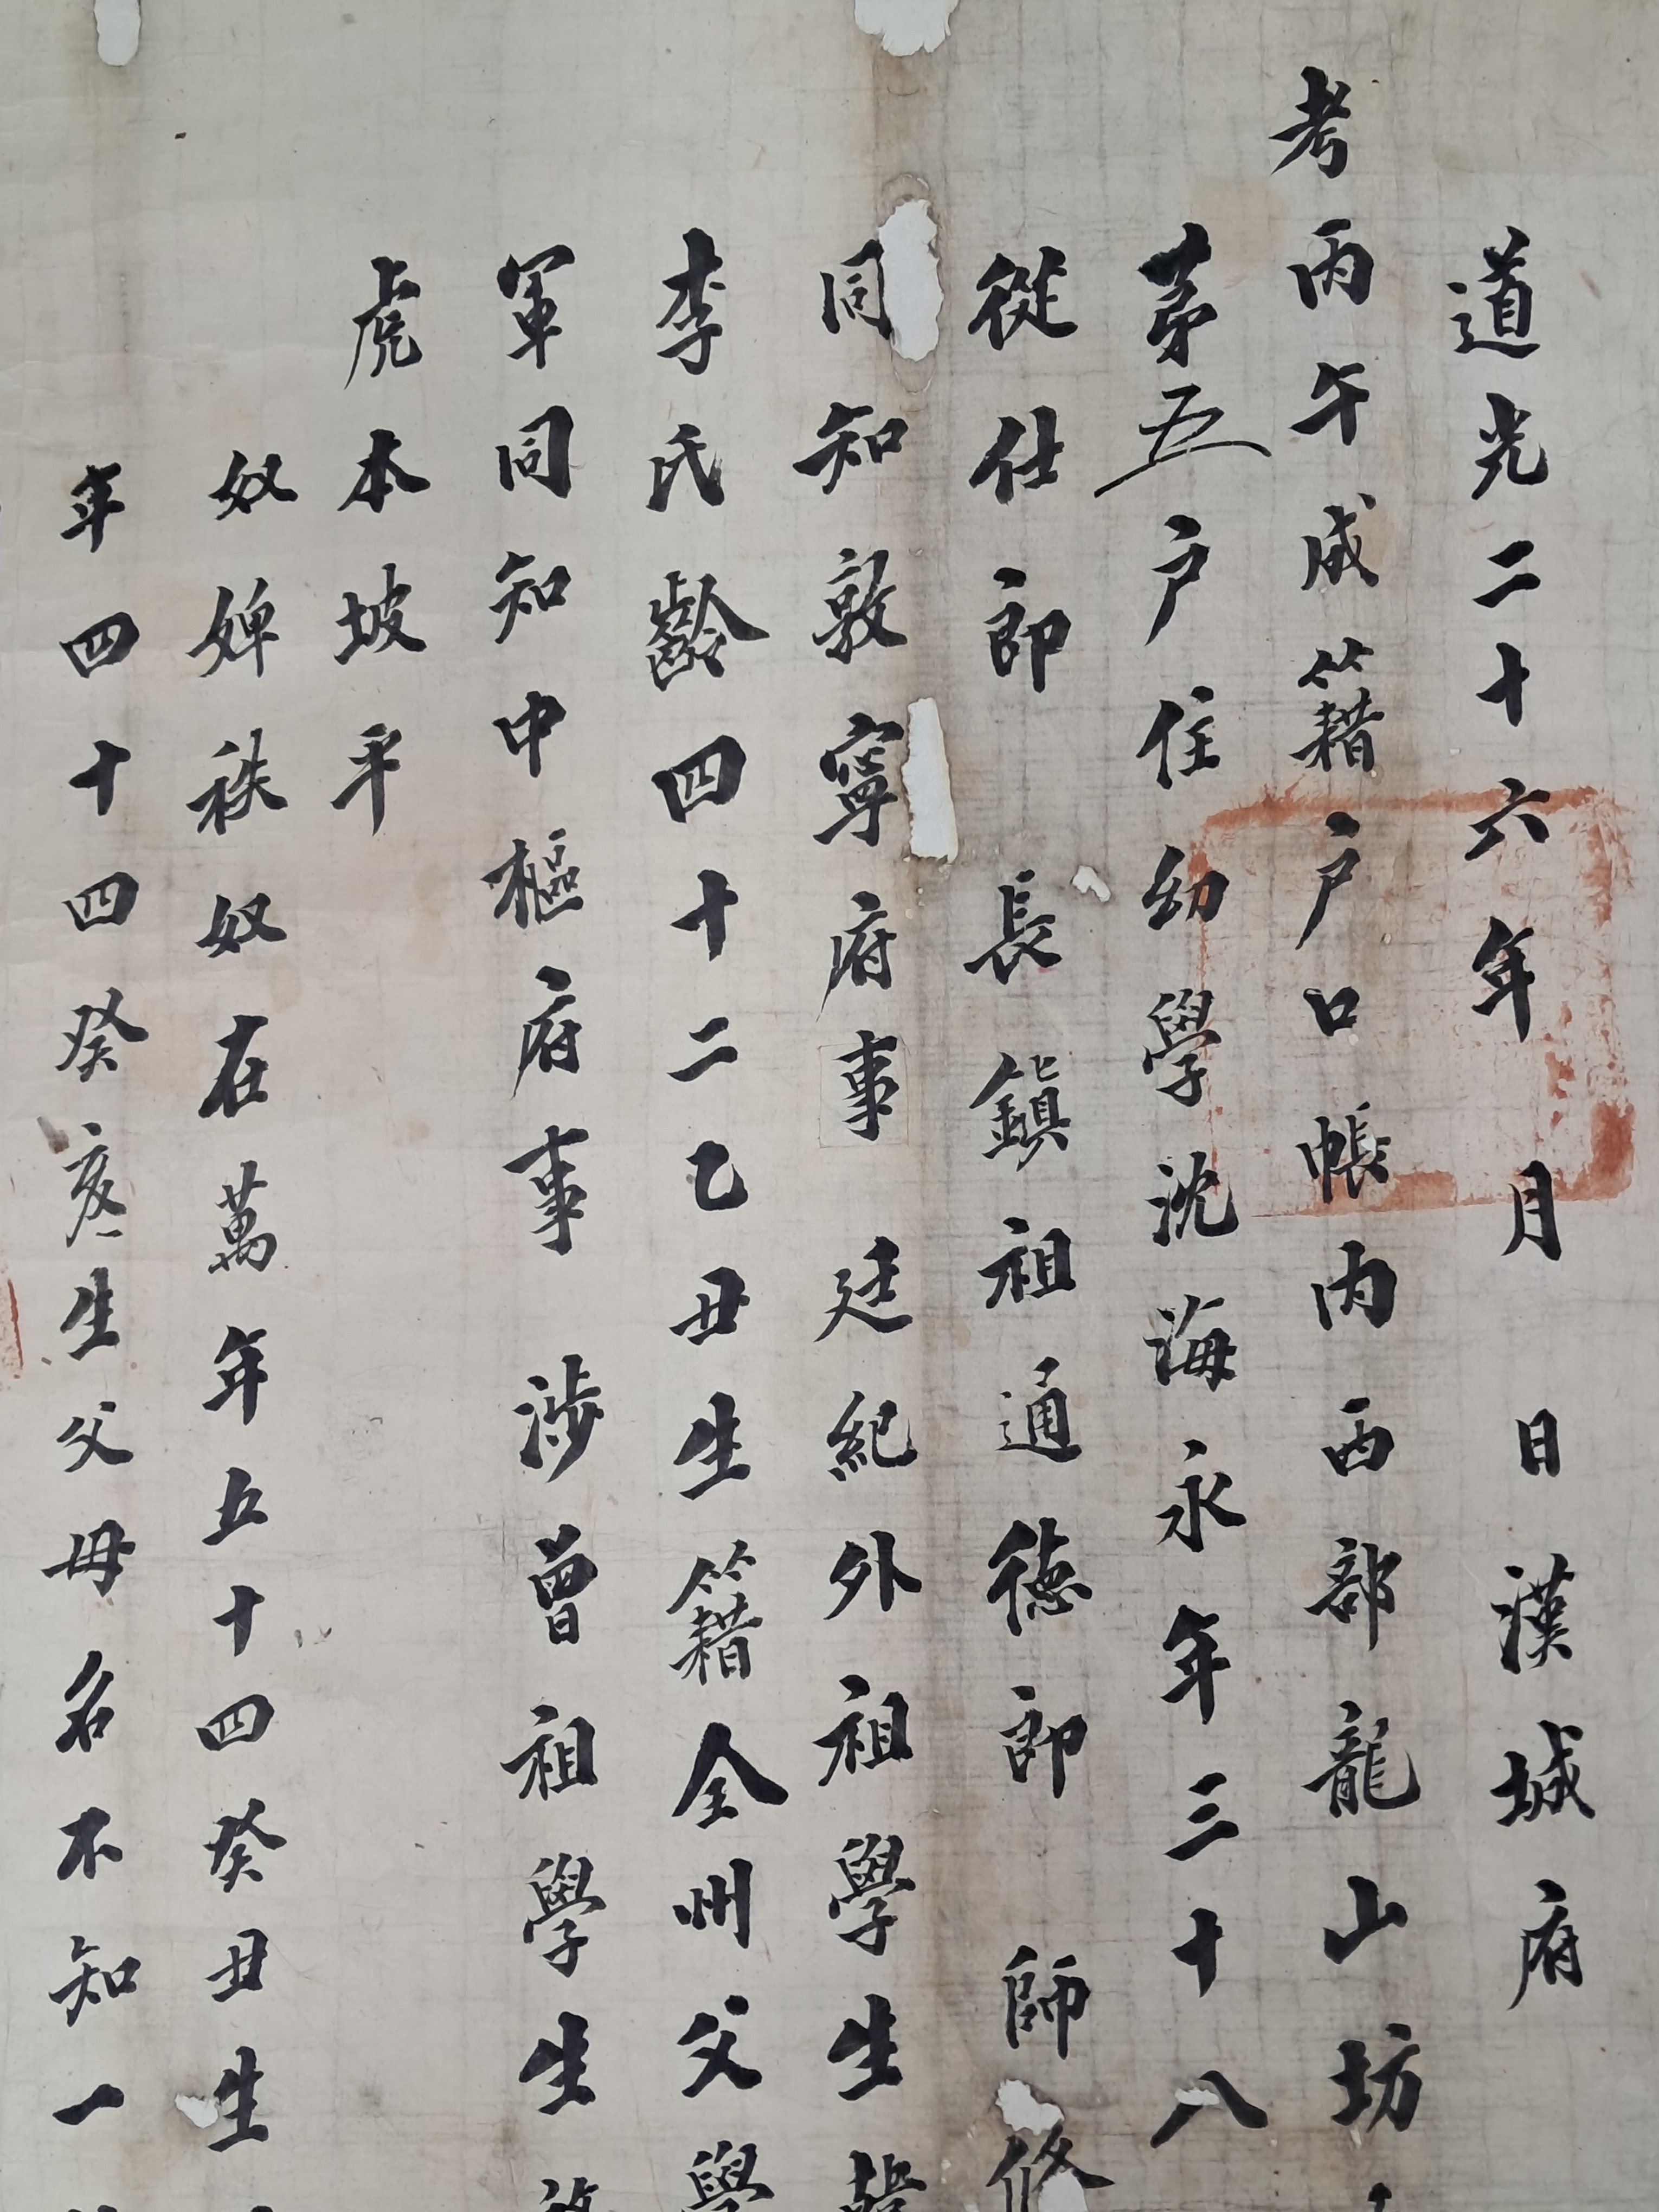 道光二十六年 月 日漢城府
考丙午成籍戶口帳內西部龍山坊
苐五戶住幼學沈海永年三十八
從仕郎 長鎭祖通德郎 師
同知敦寧府事 廷紀外祖學生
李氏齡四十二乙丑生籍全州父學
軍同知中樞府事 涉曾祖學生
虎本坡平
奴婢秩奴在萬年五十四癸丑生
年四十四癸亥生父母名不知一